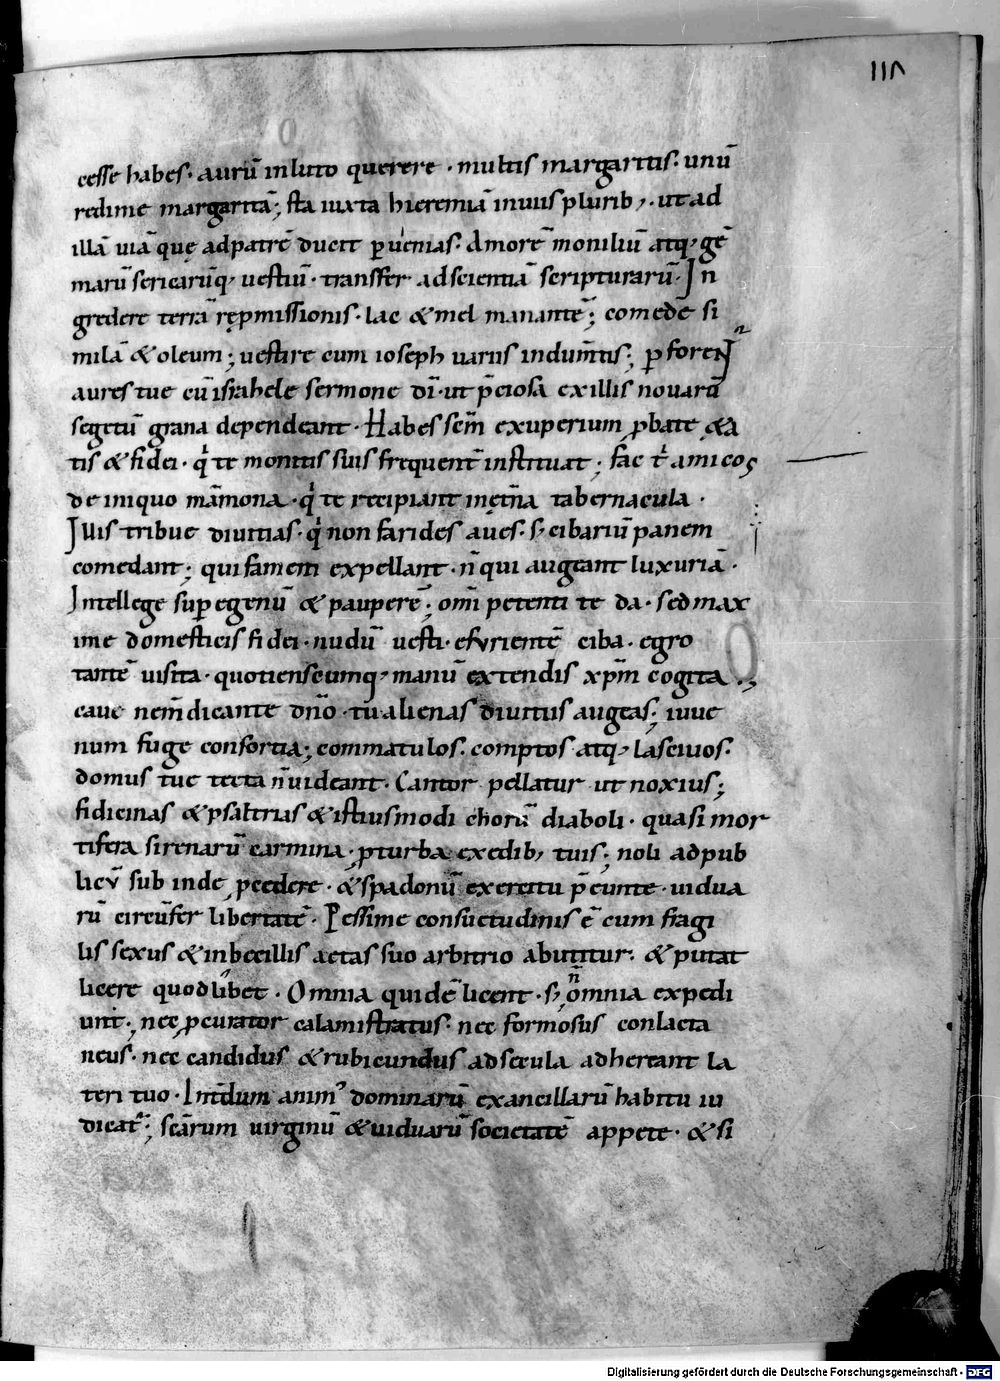 117
cesse habes· aurū inluto querere · multis margaritis· unū
redime margaritā; sta iuxta hieremiā inuiis plurib;· ut ad
illā uiā quę adpatrē ducit puenias· Amorē moniliū atq; gē
marū sericarūq; uestiū· transfer adscientiā scripturarū· In
gredere terrā repmissionis· lac & mel manantē; comede si
milā & oleum; uestire cum ioseph uariis indumtis; pforent
aures tue cū israhele sermone dī· ut pciosa exillis nouarū
segetū grana dependeant· Habes sc̄m exuperium pbate &a
tis & fidei· q̇ te monitis suis frequent̄ instituat; fac t̄ amicos
de iniquo māmona· q̇ te recipiant inet̄na tabernacula ·
Illis tribue diuitias· q̇ non farides aues· s; cibariū panem
comedant; qui famem expellant· n̄ qui augeant luxuriā·
Intellege sup egenū & pauperē; omī petenti te da· sed max
ime domesticis fidei· nudū uesti· esurientē ciba· egro
tantē uisita· quotienscumq; manū extendis xp̄m cogita·
caue nem̄dicante dn̄o· tu alienas diuitias augeas; iuue
num fuge consortia; commatulos· comptos atq; lasciuos·
domus tue tecta n̄ uideant· Cantor pellatur ut noxius;
fidicinas & psaltrias & istiusmodi chorū diaboli· quasi mor
tifera sirenarū carmina· pturba exedib; tuis; noli adpub
licū sub inde pcedere· & spadonū exercitu p̄eunte· uidua
rū circūfer libertatē· Pessime consuetudinis ē cum fragi
lis sexus & inbecillis aetas suo arbitrio abutitur· & putat
licere quod libet· Omnia quidē licent· s; n̄ omnia expedi
unt; nec pcurator calamistratus· nec formosus conlacta
neus· nec candidus & rubicundus adsecula adhereant la
teri tuo· Int̄dum anim' dominarū exancillarū habitu iu
dicat̄; sc̄arum uirginū & uiduarū societatē appete· & si
Digitalisierung gefördert durch die Deutsche Forschungsgemeinschaft · DFG